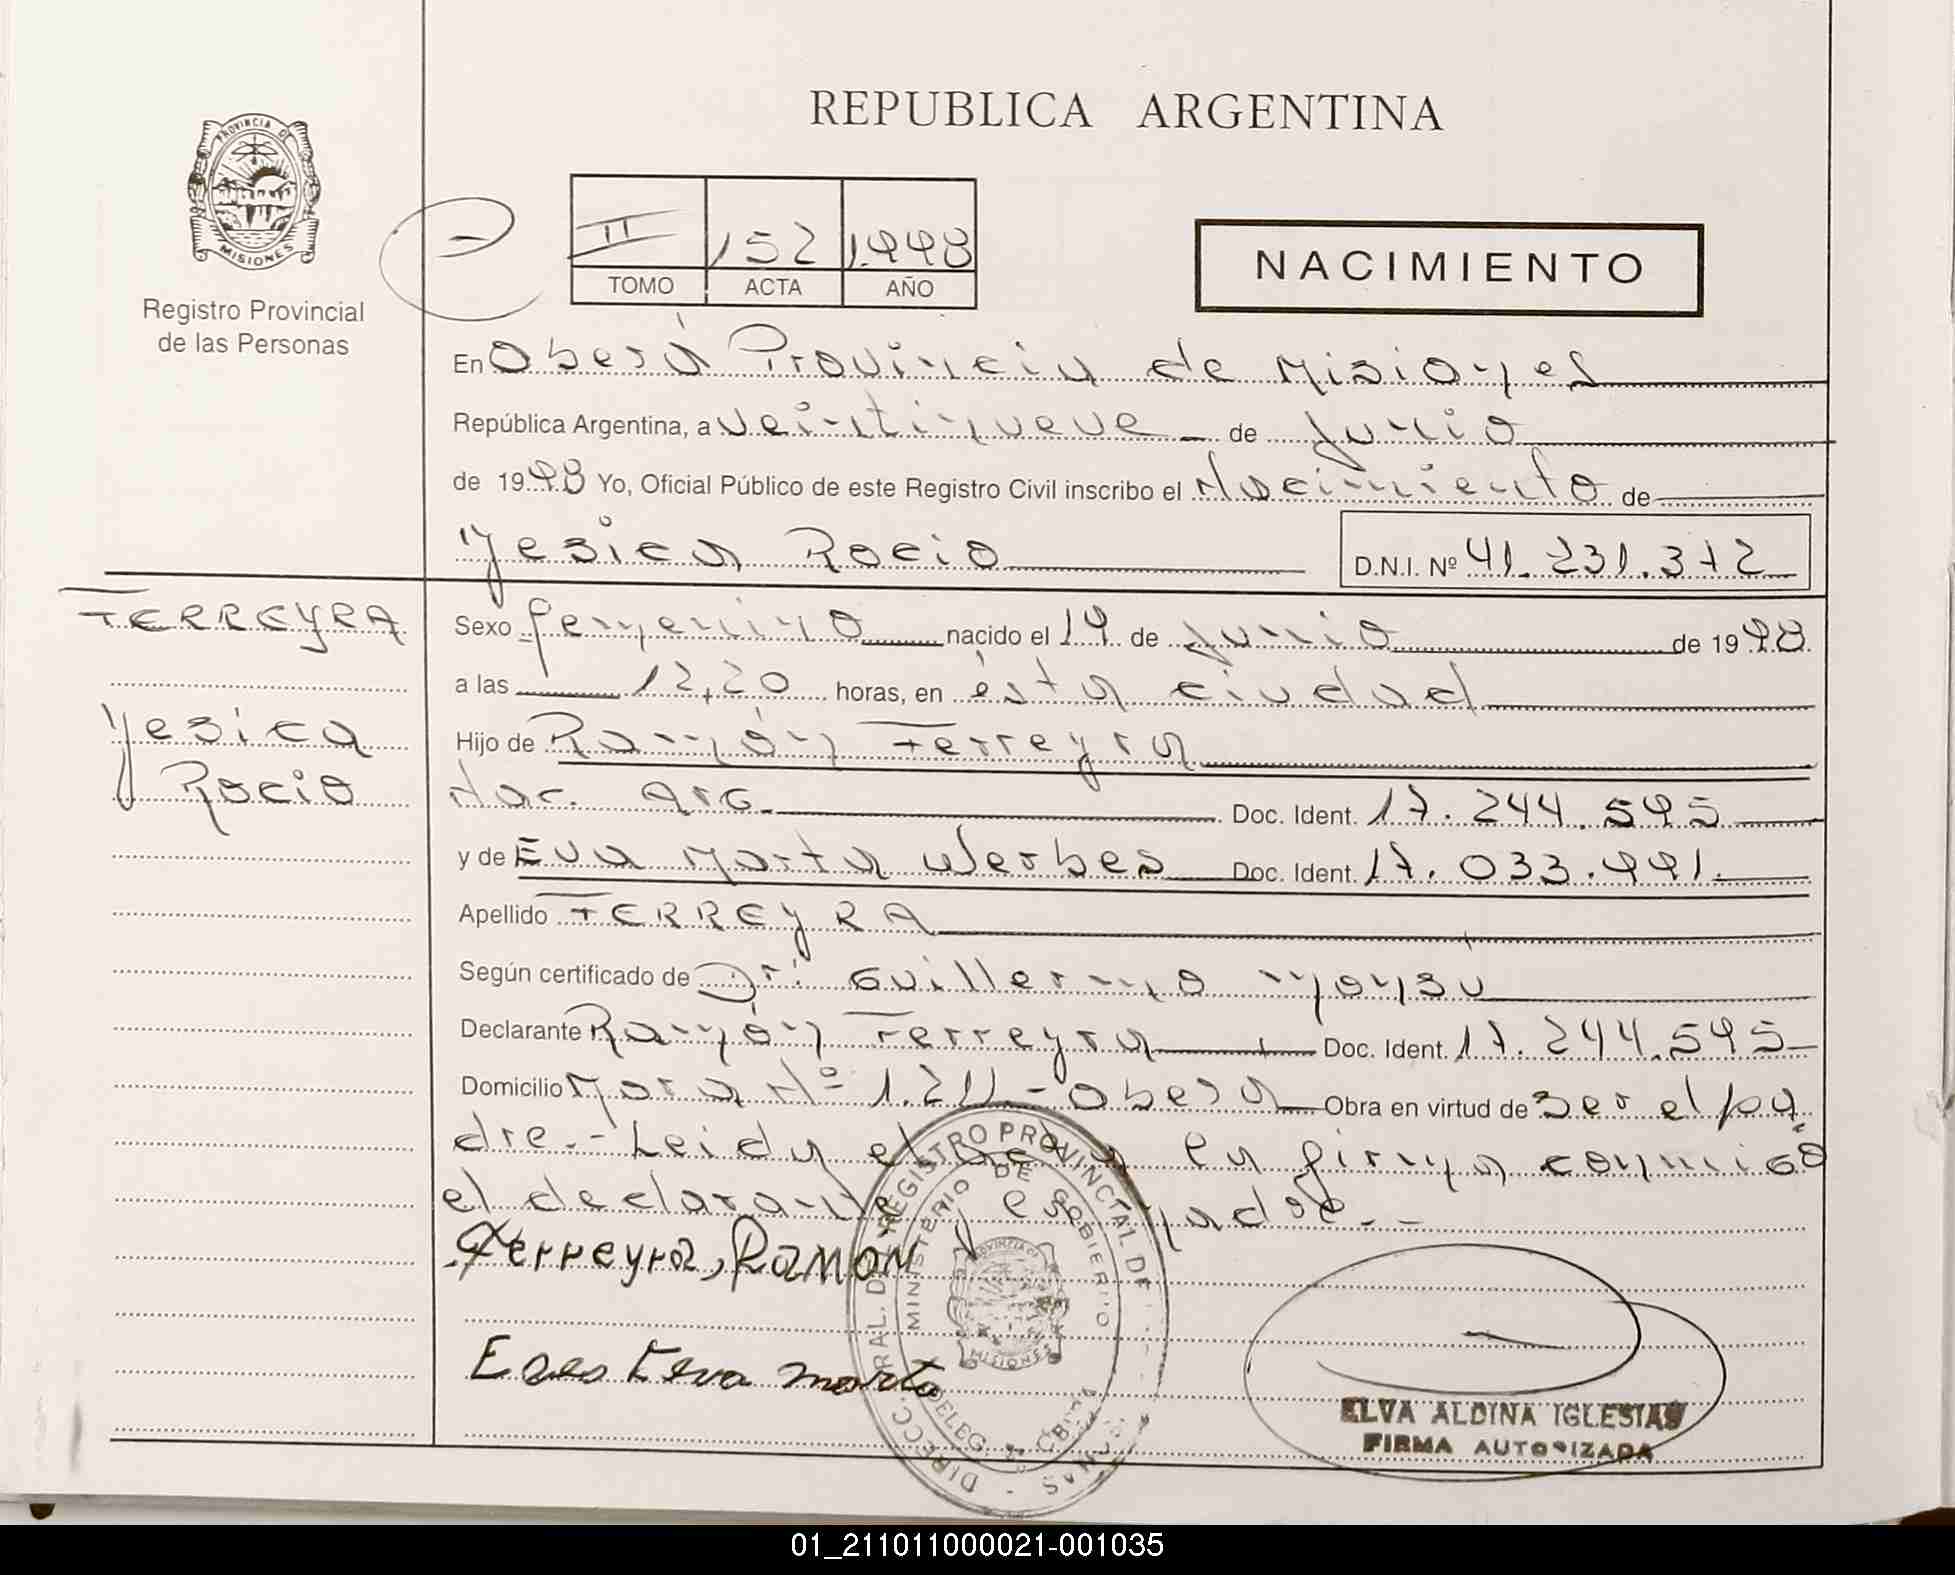 REPUBLICA ARGENTINA
PROVINCIA DE
MISIONES
Registro Provincial
de las Personas
II 152 1.998
TOMO ACTA AÑO
NACIMIENTO
En Oberá Provincia de Misiones
República Argentina, a veintinueve de Junio
de 1998 Yo, Oficial Público de este Registro Civil inscribo el Nacimiento de
Yesica Rocio D.N.I. Nº 41.231.372
FERREYRA
Yesica
Rocio
Sexo femenino nacido el 19 de Junio de 1998.
a las 12,20 horas, en ésta ciudad
Hijo de Ramón Ferreyra
Nac. Arg. Doc. Ident. 17.244.595
y de Eva Marta Werbes Doc. Ident. 17.033.991.
Apellido FERREYRA
Según certificado de Dr. Guillermo
Declarante Ramón Ferreyra Doc. Ident. 17.244.595
Domicilio Nº 1.211 - Obera Obra en virtud de ser el pa
dre.- Leida el acta la firma conmigo
el declarante y esa madre.-
Ferreyra, RAMON
Eva marta
DIRECC. GRAL. DEL REGISTRO PROVINCIAL DE
MINISTERIO DE GOBIERNO
PROVINCIA DE
MISIONES
DELEG.
ELVA ALDINA IGLESIAS
FIRMA AUTORIZADA
01_211011000021-001035